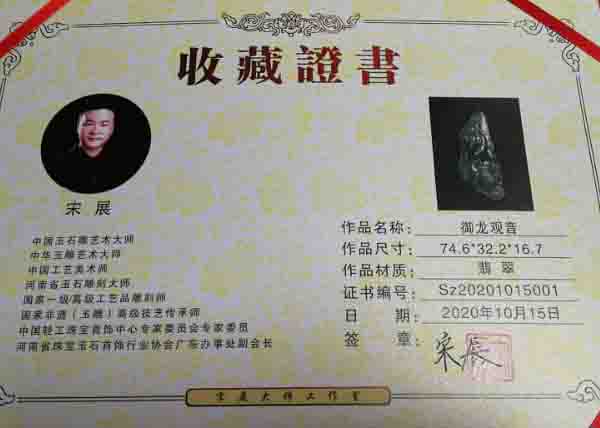 收藏證書
宋展
中国玉石雕艺术大师
中华玉雕艺术大师
中国工艺美术师
河南省玉石雕刻大师
国家一级/高级工艺品雕刻师
国家非遗（玉雕）高级技艺传承师
中国轻工珠宝首饰中心专家委员会专家委员
河南省珠宝玉石首饰行业协会广东办事处副会长
作品名称：御龙观音
作品尺寸：74.6*32.2*16.7
作品材质：翡翠
证书编号：Sz20201015001
日期：2020年10月15日
签章：宋展
宋展大师工作室